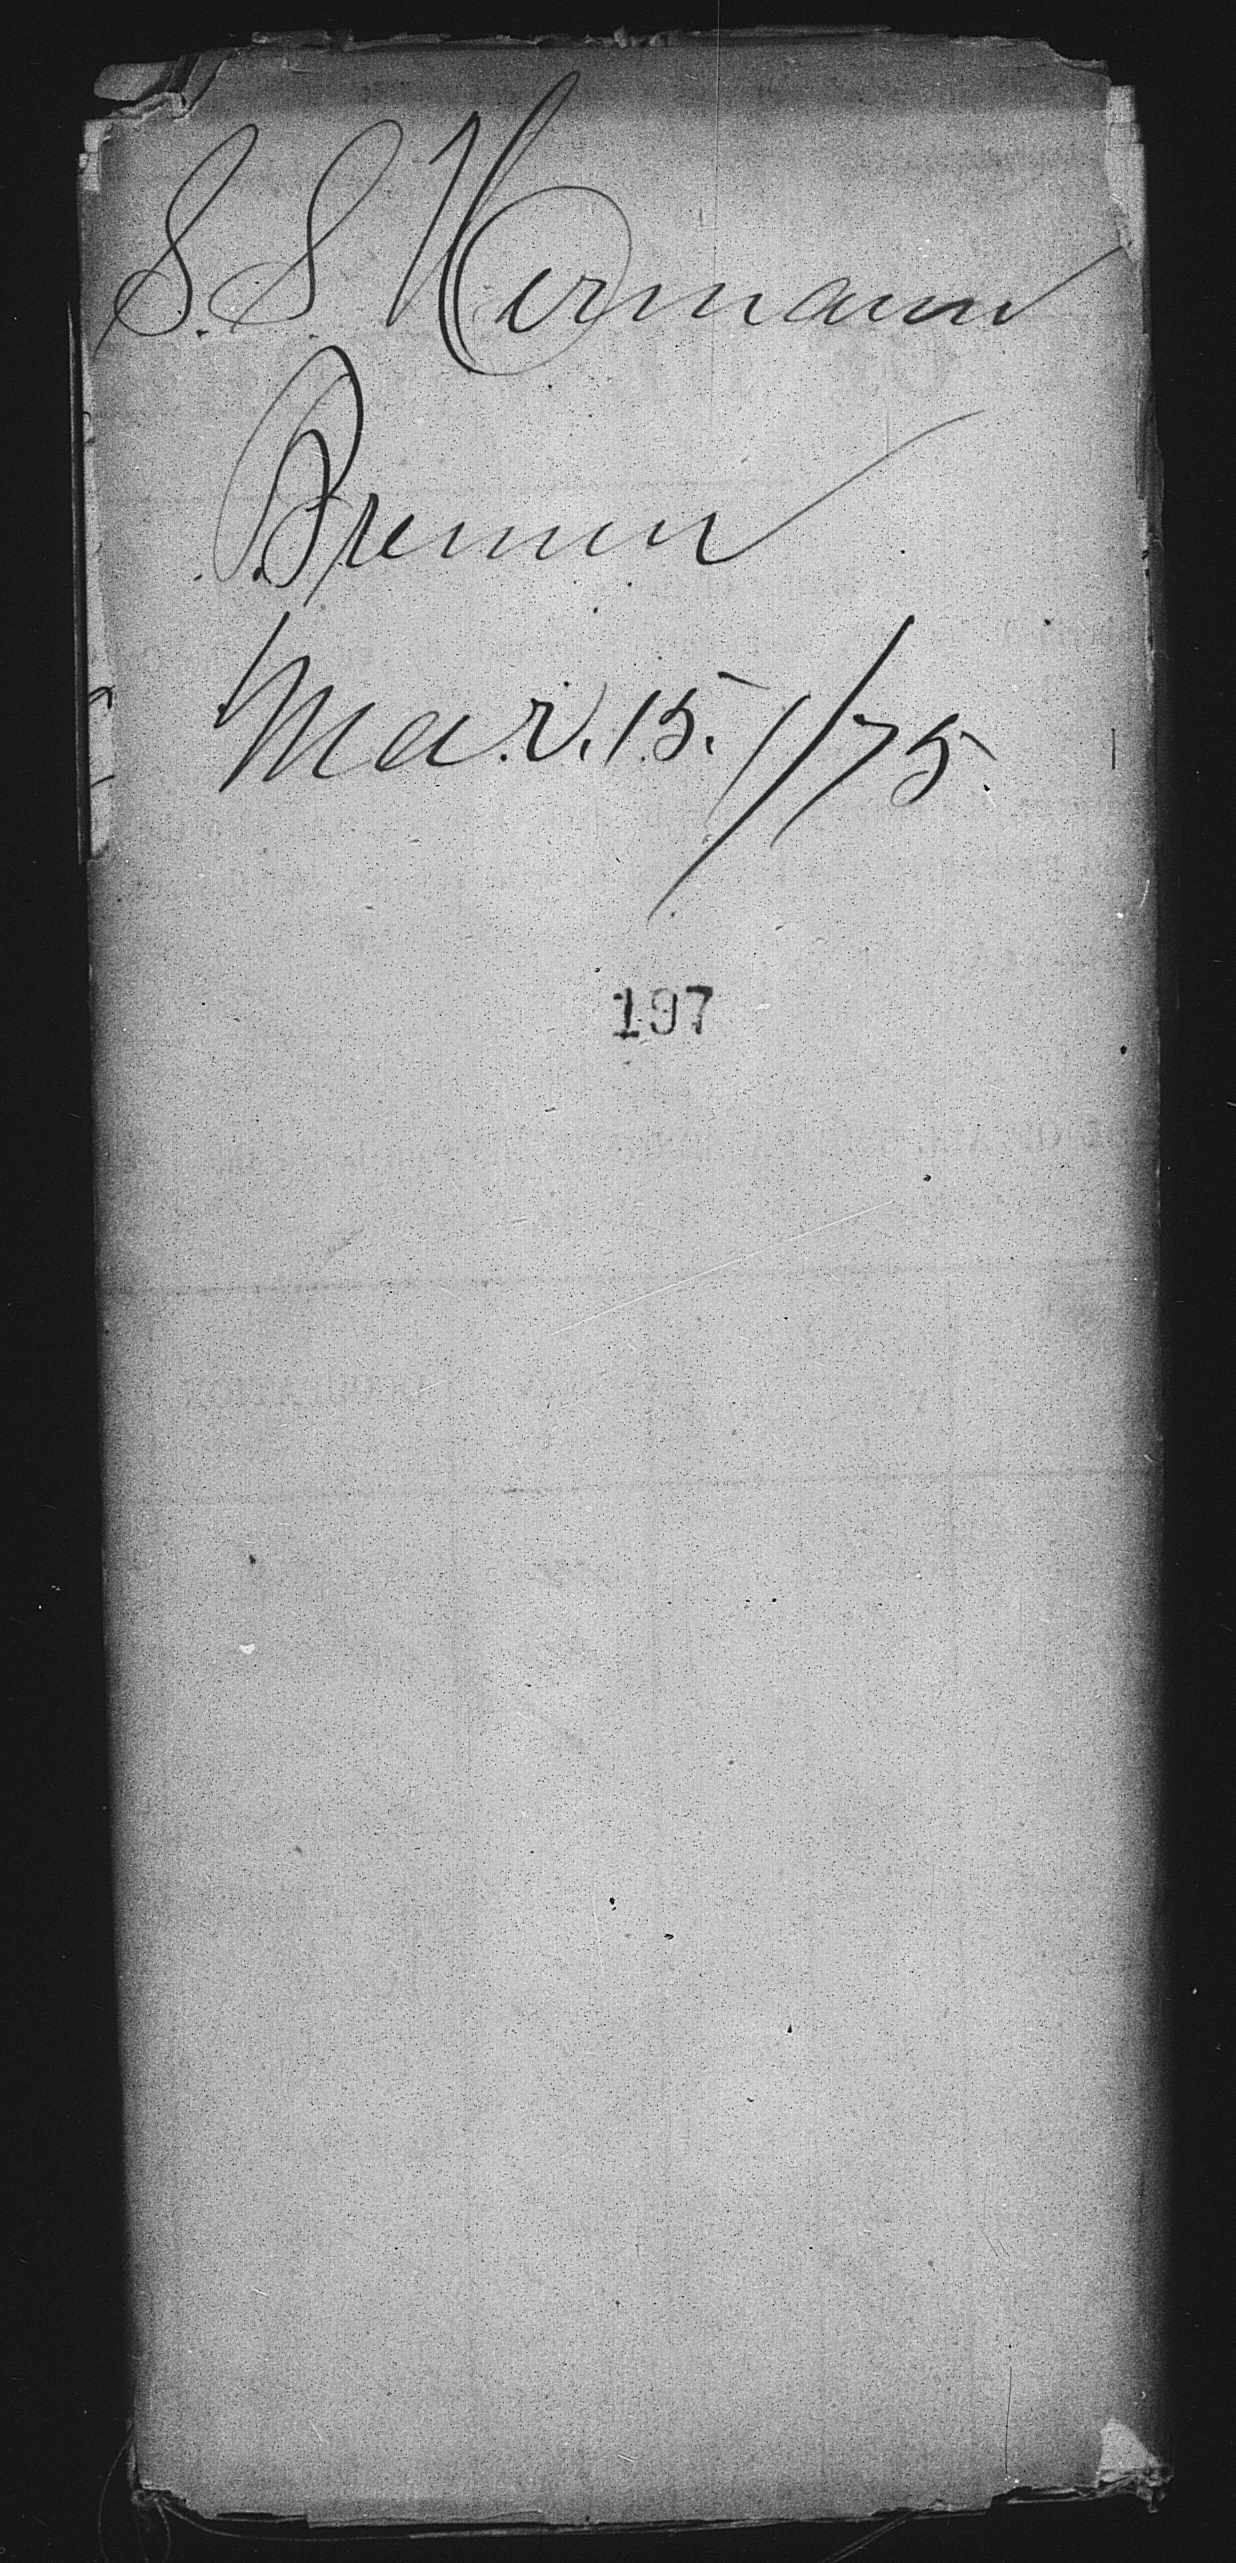 S. S. Hermann
Bremen
Mar. 15. / 75.
197